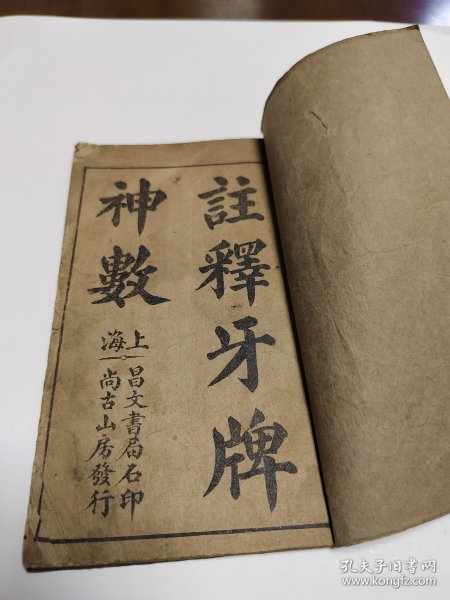 註釋牙牌
神數
上海
昌文書局石印
尚古山房發行
孔夫子旧书网
www.kongfz.com